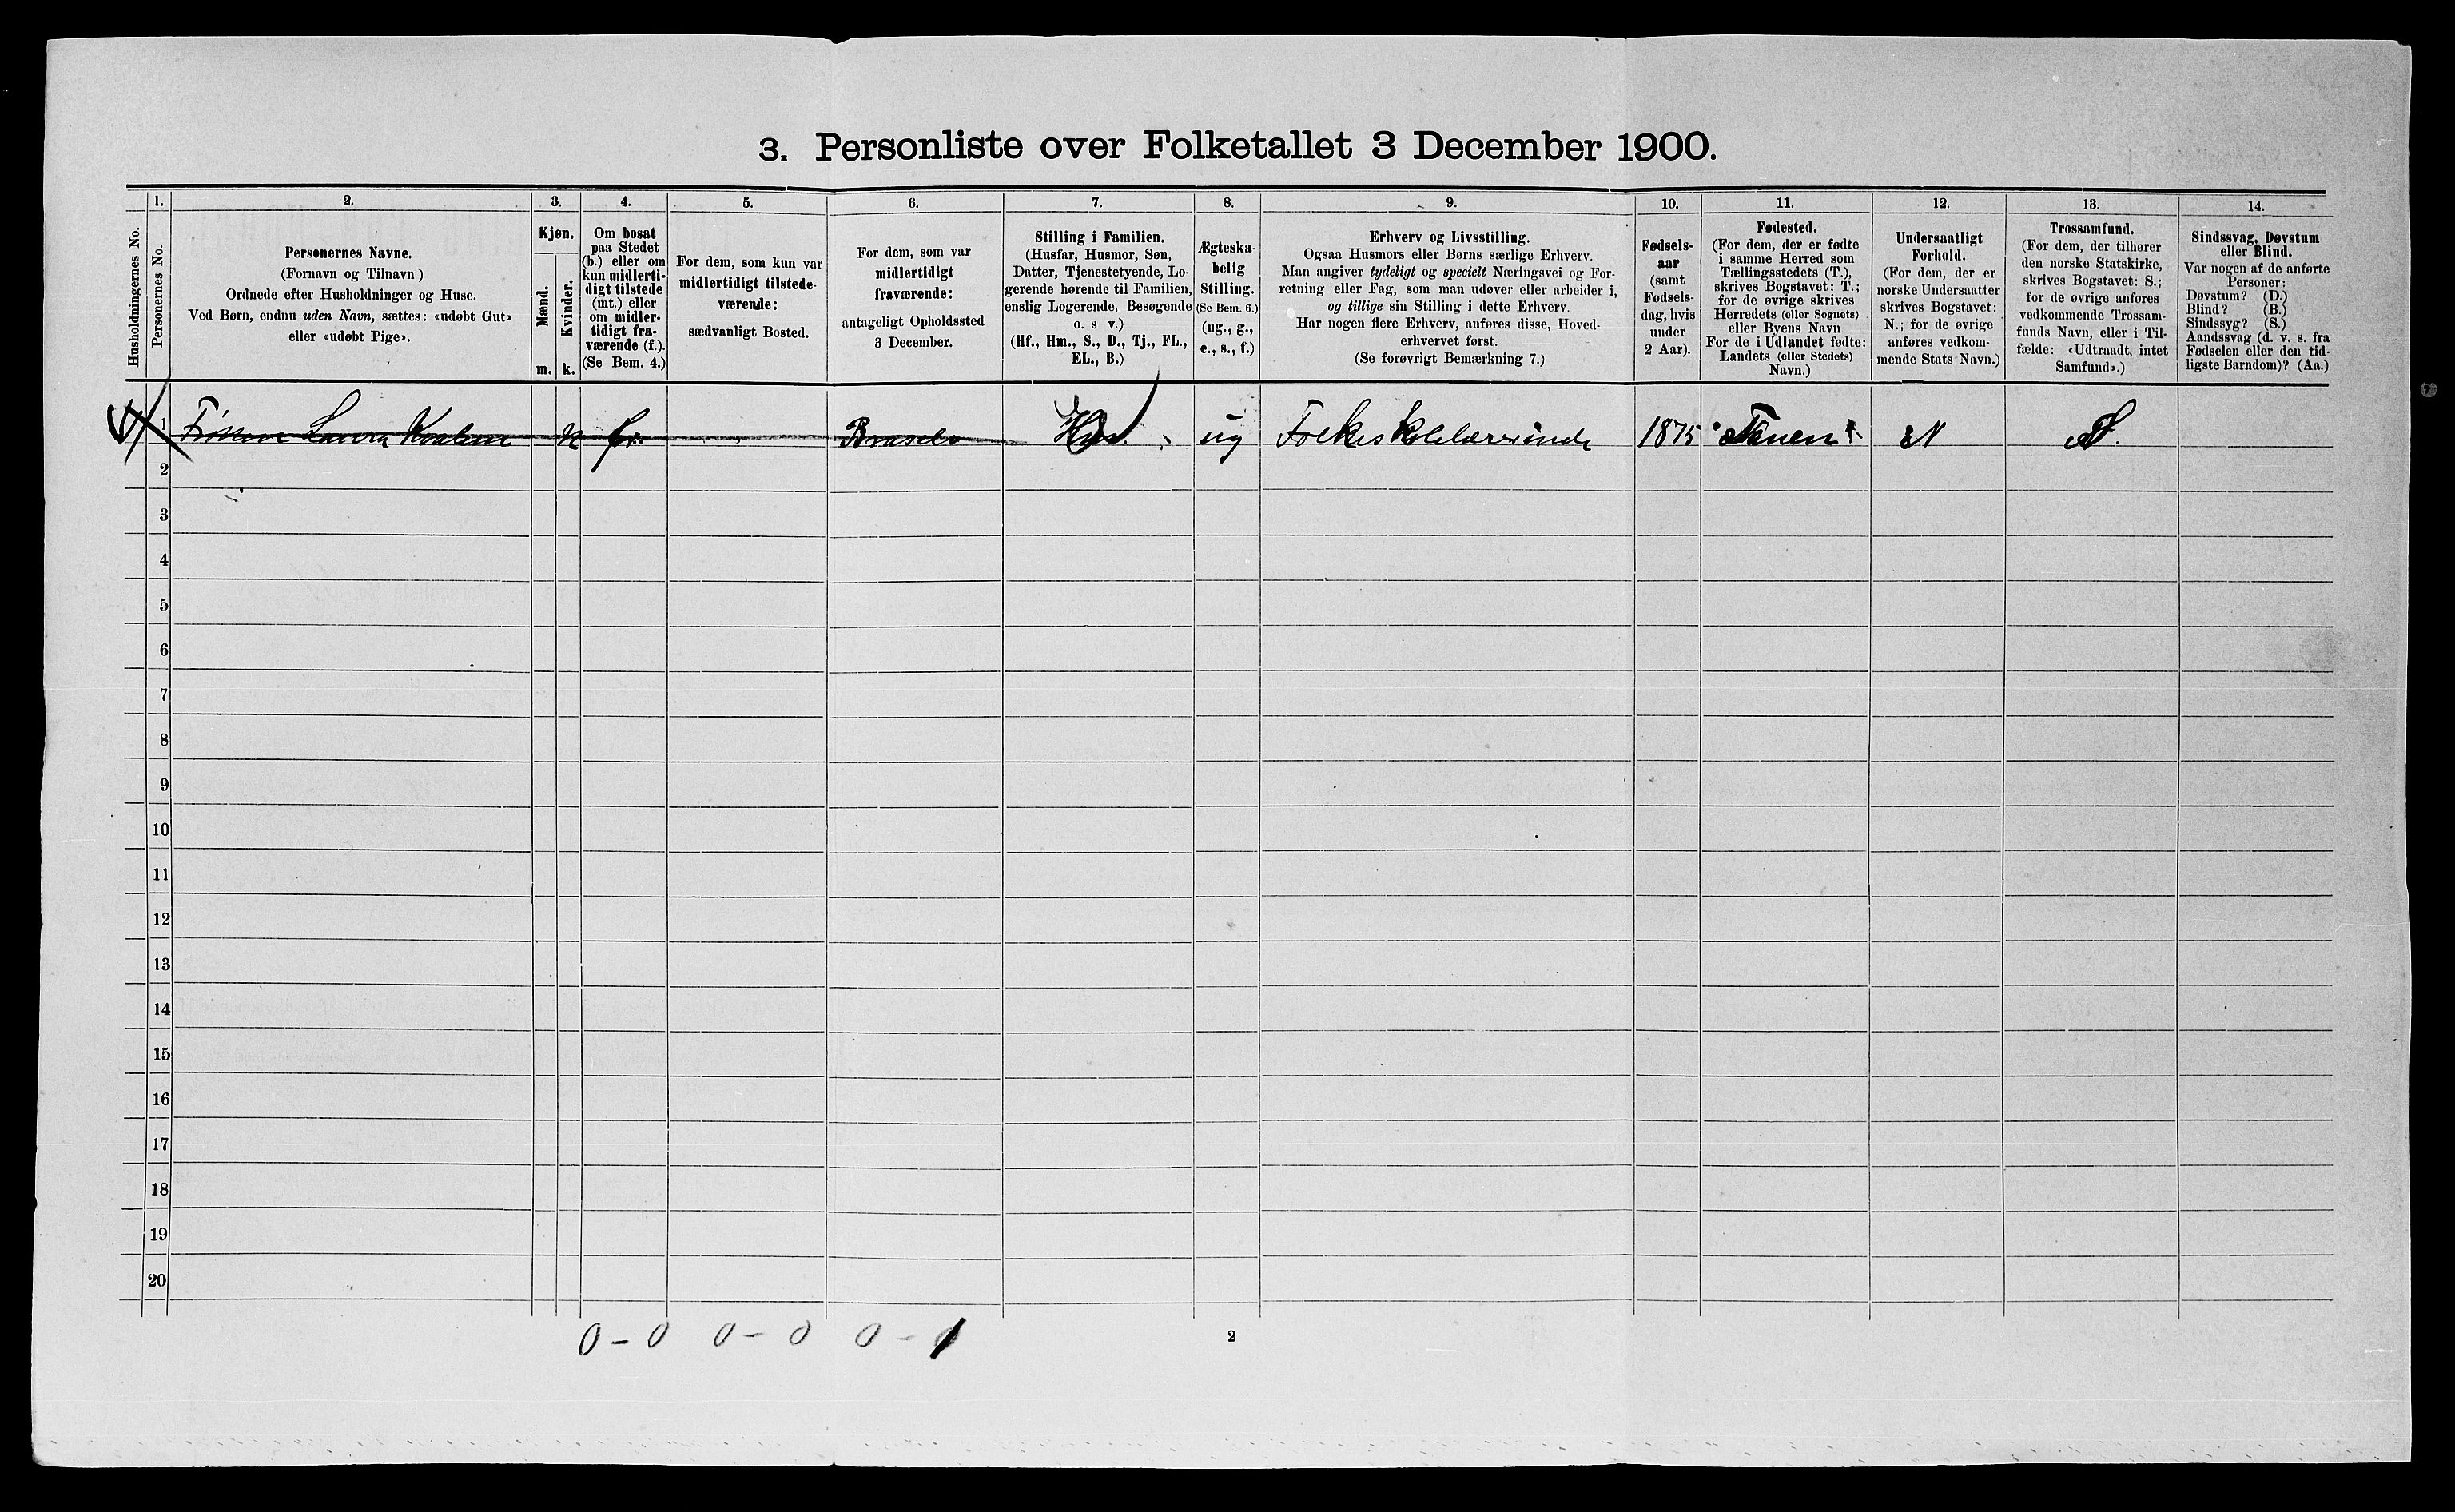 3. Personliste over Folketallet 3 December 1900.
1. 2. 3. 4. 5. 6. 7. 8. 9. 10. 11. 12. 13. 14.
Husholdningernes No.
Personernes No.
Personernes Navne.
(Fornavn og Tilnavn)
Ordnede efter Husholdninger og Huse.
Ved Børn, endnu uden Navn, sættes: «udøbt Gut»
eller «udøbt Pige».
Kjøn.
Mænd.
Kvinder.
m. k.
Om bosat
paa Stedet
(b.) eller om
kun midlerti-
digt tilstede
(mt.) eller
om midler-
tidigt fra-
værende (f.).
(Se Bem. 4.)
For dem, som kun var
midlertidigt tilstede-
værende:
sædvanligt Bosted.
For dem, som var
midlertidigt
fraværende:
antageligt Opholdssted
3 December.
Stilling i Familien.
(Husfar, Husmor, Søn,
Datter, Tjenestetyende, Lo-
gerende hørende til Familien,
enslig Logerende, Besøgende
o. s v.)
(Hf., Hm., S., D., Tj., FL.,
EL., B.)
Ægteska-
belig
Stilling.
(Se Bem. 6.)
(ug., g.,
e., s., f.)
Erhverv og Livsstilling.
Ogsaa Husmors eller Børns særlige Erhverv.
Man angiver tydeligt og specielt Næringsvei og For-
retning eller Fag, som man udøver eller arbeider i,
og tillige sin Stilling i dette Erhverv.
Har nogen flere Erhverv, anføres disse, Hoved-
erhvervet først.
(Se forøvrigt Bemærkning 7.)
Fødsels-
aar
(samt
Fødsels-
dag, hvis
under
2 Aar).
Fødested.
(For dem, der er fødte
i samme Herred som
Tællingsstedets (T.),
skrives Bogstavet: T.;
for de øvrige skrives
Herredets (eller Sognets)
eller Byens Navn
For de i Udlandet fødte:
Landets (eller Stedets)
Navn.)
Undersaatligt
Forhold.
(For dem, der er
norske Undersaatter
skrives Bogstavet:
N.; for de øvrige
anføres vedkom-
mende Stats Navn.)
Trossamfund.
(For dem, der tilhører
den norske Statskirke,
skrives Bogstavet: S.;
for de øvrige anføres
vedkommende Trossam-
funds Navn, eller i Til-
fælde: «Udtraadt, intet
Samfund».)
Sindssvag, Døvstum
eller Blind.
Var nogen af de anførte
Personer:
Døvstum? (D.)
Blind? (B.)
Sindssyg? (S.)
Aandssvag (d. v. s. fra
Fødselen eller den tid-
ligste Barndom)? (Aa.)
1 Laura ug Folkeskolelærerinde 1875 N S.
2
3
4
5
6
7
8
9
10
11
12
13
14
15
16
17
18
19
20
0 - 0 0 - 0 0 - 1
2